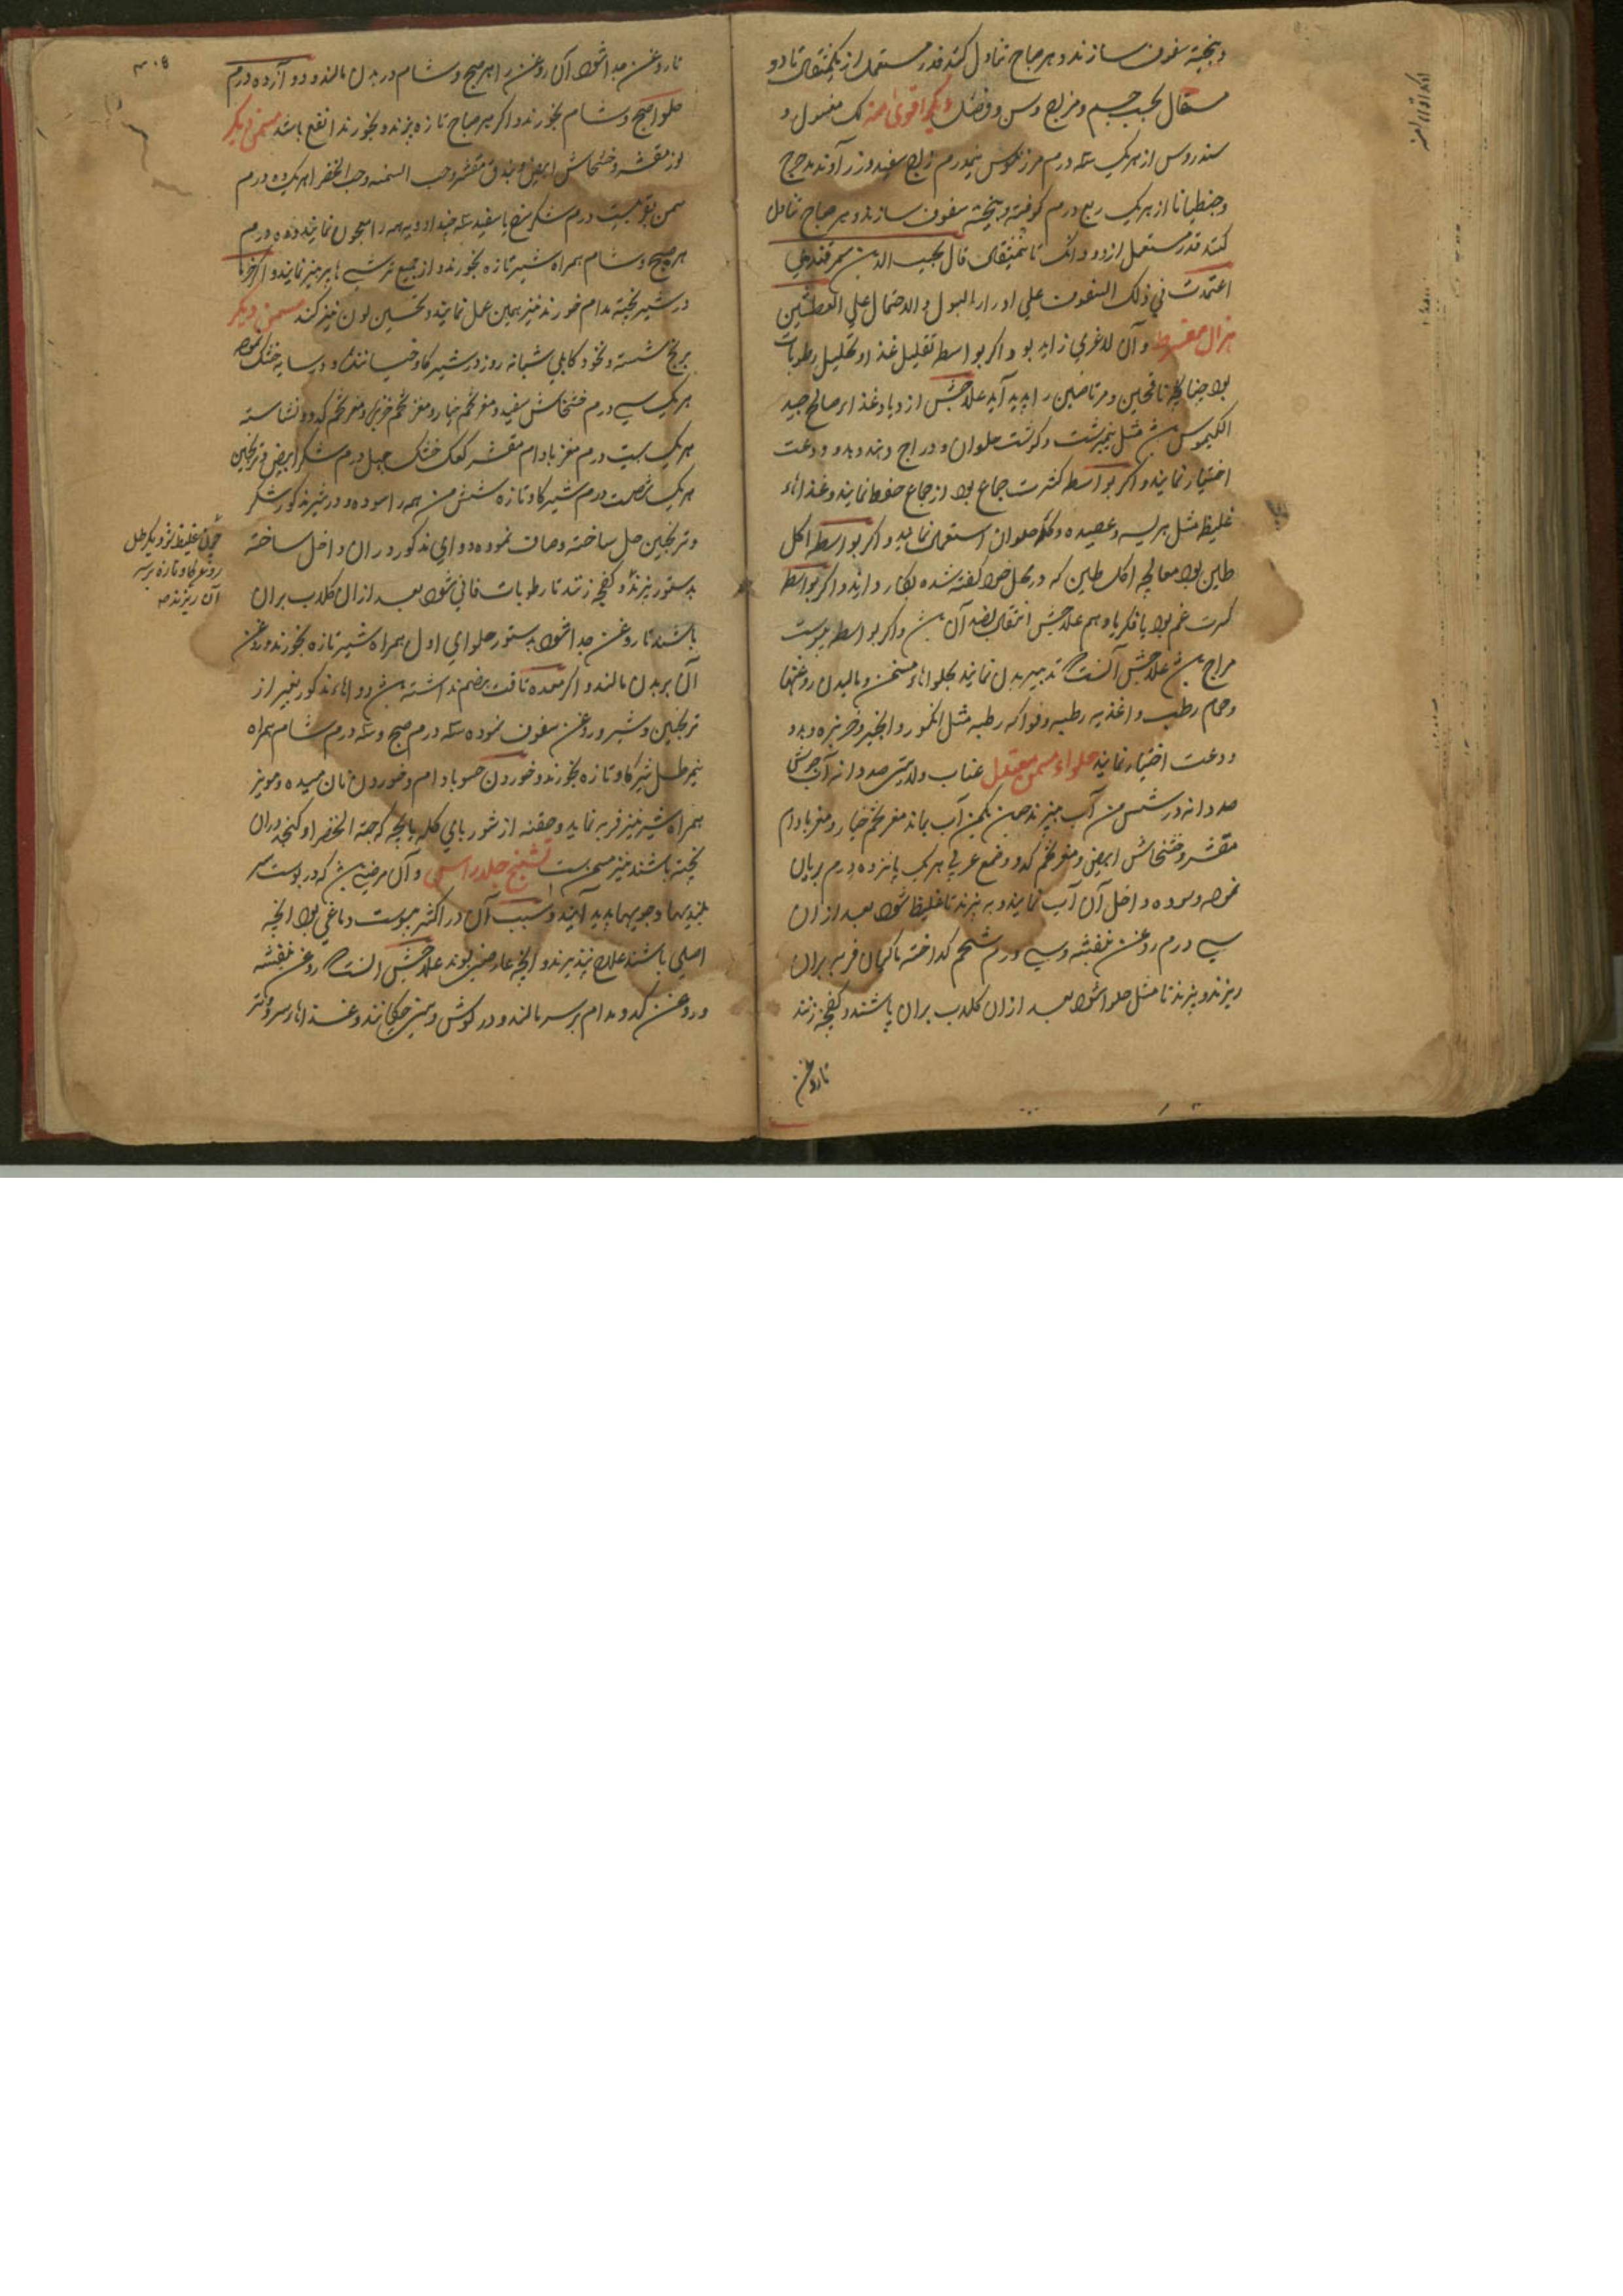 و بیخته سفوف سازند و هر صباح تناول کنند قدر مستعمل از یکمثقال تا دو
مثقال بحسب جسم و مزاج و سن و فصل دیگر اقوی منه لک مغسول و
سندروس از هریک سه درم مرزنکوش نیمدرم زاج سفید و زرآوند مدحرج
و جنطیانا از هریک ربع درم کوفته و بیخته سفوف سازند و هر صباح تناول
کنند قدر مستعمل از دو دانک تا نیمثقال قال نجیب الدین سمرقندی
اعتمدت فی ذلک السفوف علی ادرار البول و الاحتمال علی العطش
هزال مفرط و آن لاغری زاید بود و اکر بواسطه تقلیل غذا و تحلیل رطوبات
بود چنانچه ناقهین و مرتاضین را پدید آید علاجش ازدیاد غذاء صالح جید
الکیموس مثل نیمبرشت و کوشت حلوان و دراج دهند و بدو ودعت
اختیار نمایند و اکر بواسطه کثرت جماع بود از جماع حفظ نمایند و غذاهاء
غلیظ مثل هریسه و عصیده و کله حلوان استعمال نمایند و اکر بواسطه اکل
طین بود معالجه اکل طین که در محل خود کفته شده بکار دارند و اکر بواسطه
کثرت غم بود یا فکر یا وهم علاجش انتقال بضد آن و اکر بواسطه یبوست
مزاج علاجش آنست تدبیر بدن نمایند بحلواهاء مسمن و مالیدن روغنها
و حمام رطب و اغذیه رطبه و فواکه رطبه مثل انکور و انجیر و خربزه و بدو
ودعت اختیار نمایند حلواء مسمن معتدل عناب ولایتی صد دانه آب
صد دانه در شش من آب بپزند چون یکمن آب بماند مغز تخم خیار و مغز بادام
مقشر و خشخاش ابیض و مغز تخم کدو و صمغ عربی هریک پانزده درم بریان
نموده و سوده داخل آن آب نمایند و بپزند تا غلیظ شود بعد از ان
سی درم روغن بنفشه و سی درم شحم کداخته ماکیان فربه بران
ریزند و بپزند تا مثل حلوا شود بعد ازان کلاب بران پاشند و کفچه زنند
تا روغن
تا روغن جدا شود آن روغن را هر صبح و شام در بدن مالند و دوازده درم
حلوا صبح و شام بخورند و اکر هر صباح تازه بپزند و بخورند انفع باشد مسمن دیکر
لوز مقشر و خشخاش ابیض و فندق مقشر و حب السمنه و حب الخضرا هریک ده درم
سمن بقر بیست درم شکر سفید سه چند ادویه همه را معجون نمایند و ده درم
هر صبح و شام همراه شیر تازه بخورند و از جمیع ترشیها پرهیز نمایند و اکر خرما
در شیر پخته مدام خورند نیز همین عمل نمایند و تحسین لون نیز کند مسمن دیکر
برنج شسته و نخود کابلی شبانه روز در شیر کاو خیسانند و در سایه خشک نموده
هریک سی درم خشخاش سفید و مغز تخم خیار و مغز تخم خربزه و مغز تخم کدو و نشاسته
هریک بیست درم مغز بادام مقشر کعک خشک چهل درم شکر ابیض و ترنجبین
هریک شصت درم شیر کاو تازه شش من همه را سوده در شیر مذکور شکر
و ترنجبین حل ساخته و صاف نموده دوای مذکور دران داخل ساخته
بدستور بپزند و کفچه زنند تا رطوبات فانی شود بعد ازان کلاب بران
پاشند تا روغن جدا شود بدستور حلوای اول همراه شیر تازه بخورند و روغن
آن بر بدن مالند و اکر معده طاقت هضم نداشته دواهاء مذکور بغیر از
ترنجبین و شیر و روغن سفوف نموده سه درم صبح و سه درم شام همراه
نیم رطل شیر کاو تازه بخورند و خوردن حسو بادام و خوردن نان میده و مویز
همراه شیر نیز فربه نماید و حقنه از شوربای کله پاچه که حبة الخضرا و کنجد دران
پخته باشند نیز مسمن است تشنج جلد راس و آن مرضی که در پوست سر
بلندیها و جویها پدید آیند و سبب آن در اکثر یبوست دماغی بود آنچه
اصلی باشند علاج نپذیرند و آنچه عارضی بوند علاجش آنست روغن بنفشه
و روغن کدو مدام بر سر مالند و در کوش و بینی چکانند و غذاهاء سرد و تر
چون غلیظ شود یکرطل
روغن کاو تازه بر سر
آن ریزند